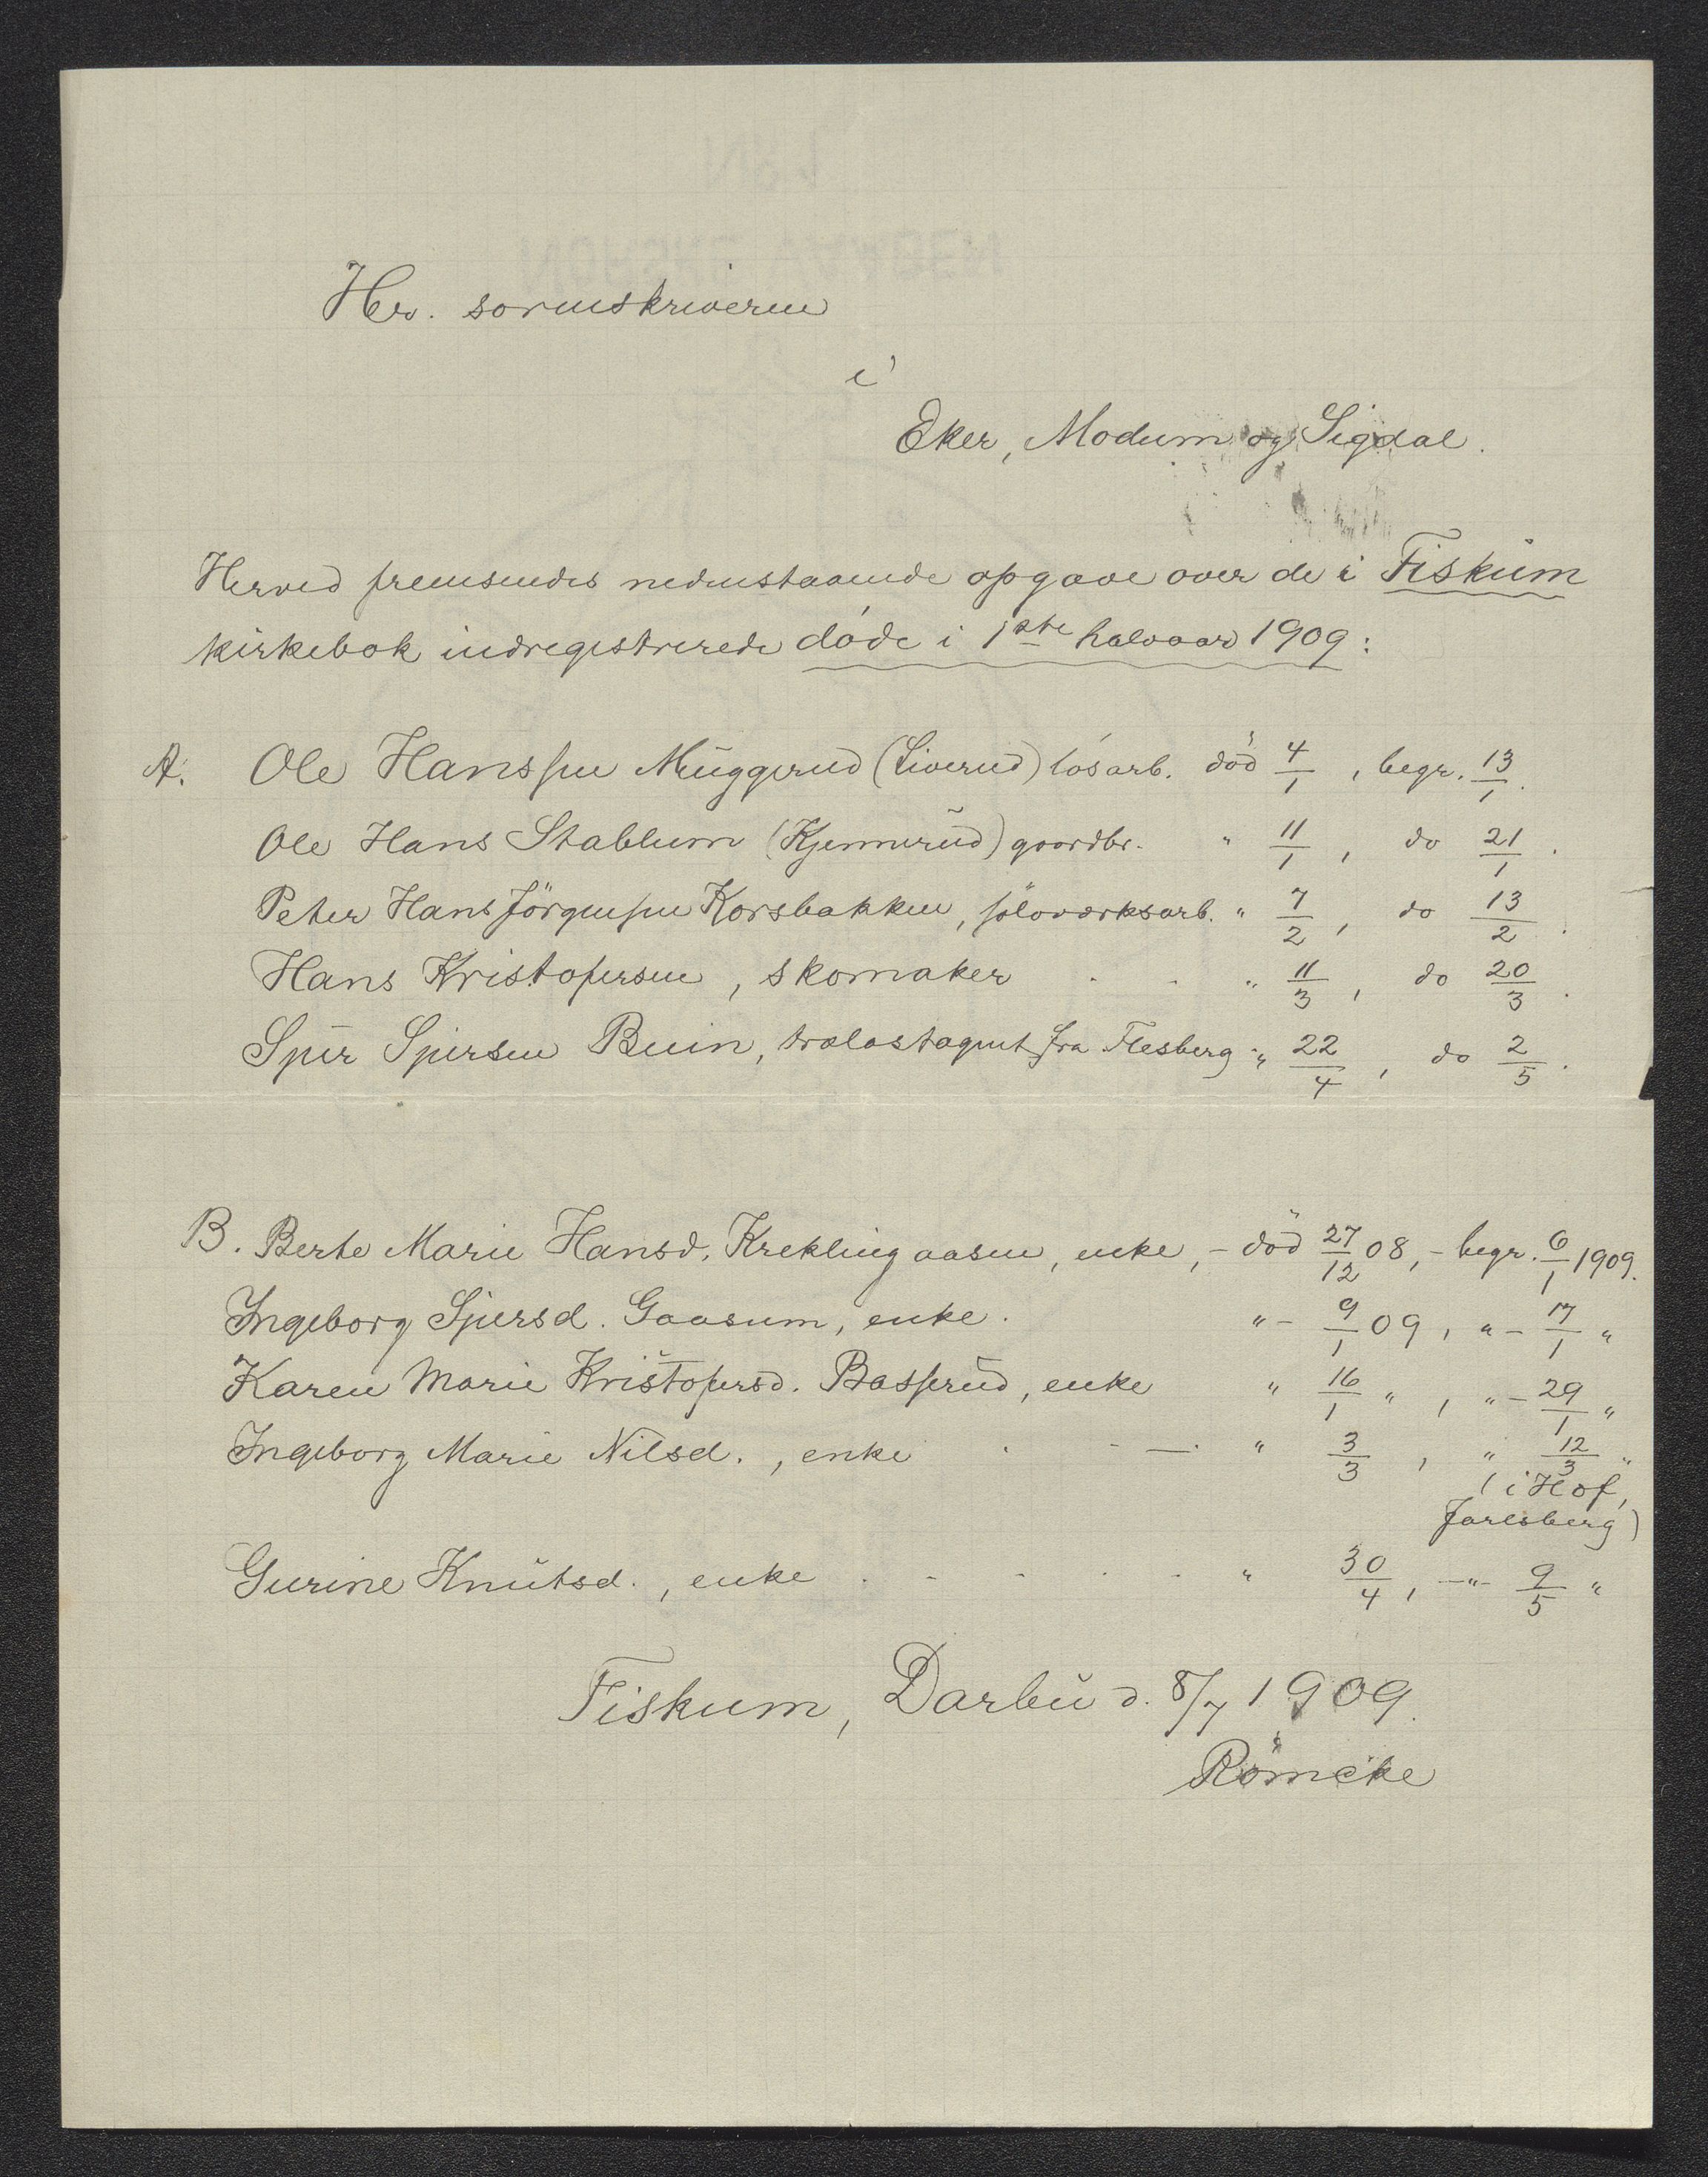 Hr. sorenskriveren
i
Eker, Modum og Sigdal.
Herved fremsendes nedenstaaende opgave over de i Fiskum
kirkebok indregistrerede døde i 1ste halvaar 1909:
A. Ole Hanssen Muggerud (Liverud) løsarb. død 4/1, begr. 13/1.
Ole Hans Stablum (Kjennerud) gaardbr. " 11/1, do 21/1.
Peter Hans Jörgensen Korsbakken, sölvverksarb. " 7/2, do 13/2.
Hans Kristofersen, skomaker " 11/3, do 20/3.
Sper Spersen Buin, trælastagent fra Flesberg " 22/4, do 2/5.
B. Berte Marie Hansd. Kreklingaasen, enke, - död 27/12 08, - begr. 6/1 1909.
Ingeborg Sjursd. Gaasum, enke. " - 9/1 09, " - 17/1 "
Karen Marie Kristofersd. Basserud, enke " 16/1 ", " - 29/1 "
Ingeborg Marie Nilsd., enke . - — . " 3/3, " 12/3 "
(i Hof,
Jarlsberg)
Gurine Knutsd., enke . - - . - " 30/4, -"- 9/5 "
Fiskum, Darbu d. 8/7 1909.
Römcke